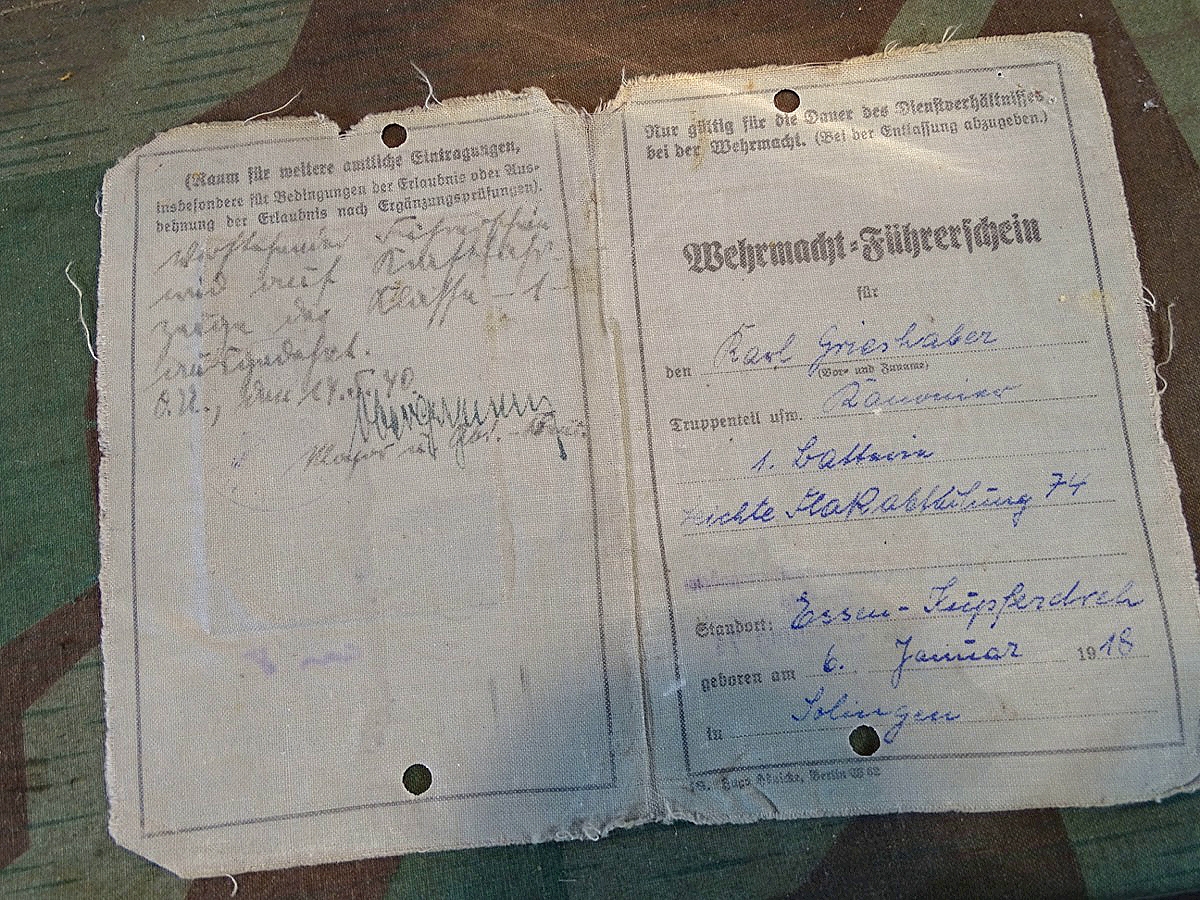 (Raum für weitere amtliche Eintragungen,
insbesondere für Bedingungen der Erlaubnis oder Aus-
dehnung der Erlaubnis nach Ergänzungsprüfungen).
Vorstehender Führerschein
wird auf Kraftfahr-
zeuge der Klasse - 1 -
ausgedehnt.
O.U., den 14.5.40
Major u. Abt.-Kdr.
Nur gültig für die Dauer des Dienstverhältnisses
bei der Wehrmacht. (Bei der Entlassung abzugeben.)
Wehrmacht-Führerschein
für
den Karl Grieshaber
(Vor- und Zuname)
Truppenteil usw. Kanonier
1. Batterie
leichte Flakabteilung 74
Standort: Essen-Kupferdreh
geboren am 6. Januar 1918
in Solingen
Berlin W 62